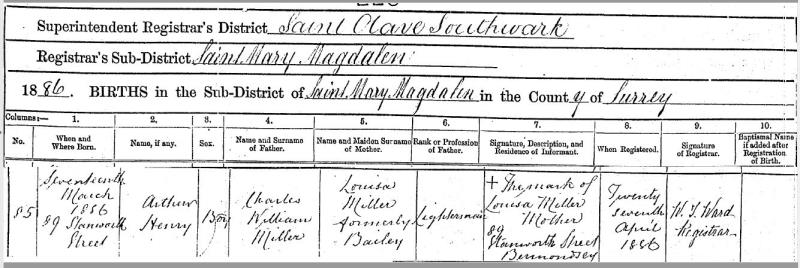 Superintendent Registrar's District Saint Olave Southwark
Registrar's Sub-District Saint Mary Magdalen
1886. BIRTHS in the Sub-District of Saint Mary Magdalen in the County of Surrey
Columns:— 1. 2. 3. 4. 5. 6. 7. 8. 9. 10.
No. When and Where Born. Name, if any. Sex. Name and Surname of Father. Name and Maiden Surname of Mother. Rank or Profession of Father. Signature, Description, and Residence of Informant. When Registered. Signature of Registrar. Baptismal Name if added after Registration of Birth.
85
Seventeenth
March
1886
89 Stanworth
Street
Arthur
Henry
Boy
Charles
William
Miller
Louisa
Miller
formerly
Bailey
Lighterman
+ The mark of
Louisa Miller
Mother
89
Stanworth Street
Bermondsey
Twenty
seventh
April
1886
W. T. Ward
Registrar